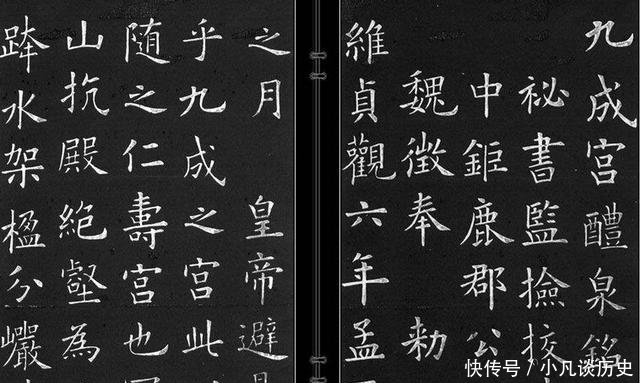 九成宮醴泉銘
祕書監撿挍
中鉅鹿郡公
魏徵奉 勅
維貞觀六年孟
之月 皇帝避
乎九成之宮此
隨之仁壽宮也
山抗殿絕壑為
跨水架楹分巖
快传号/小凡谈历史